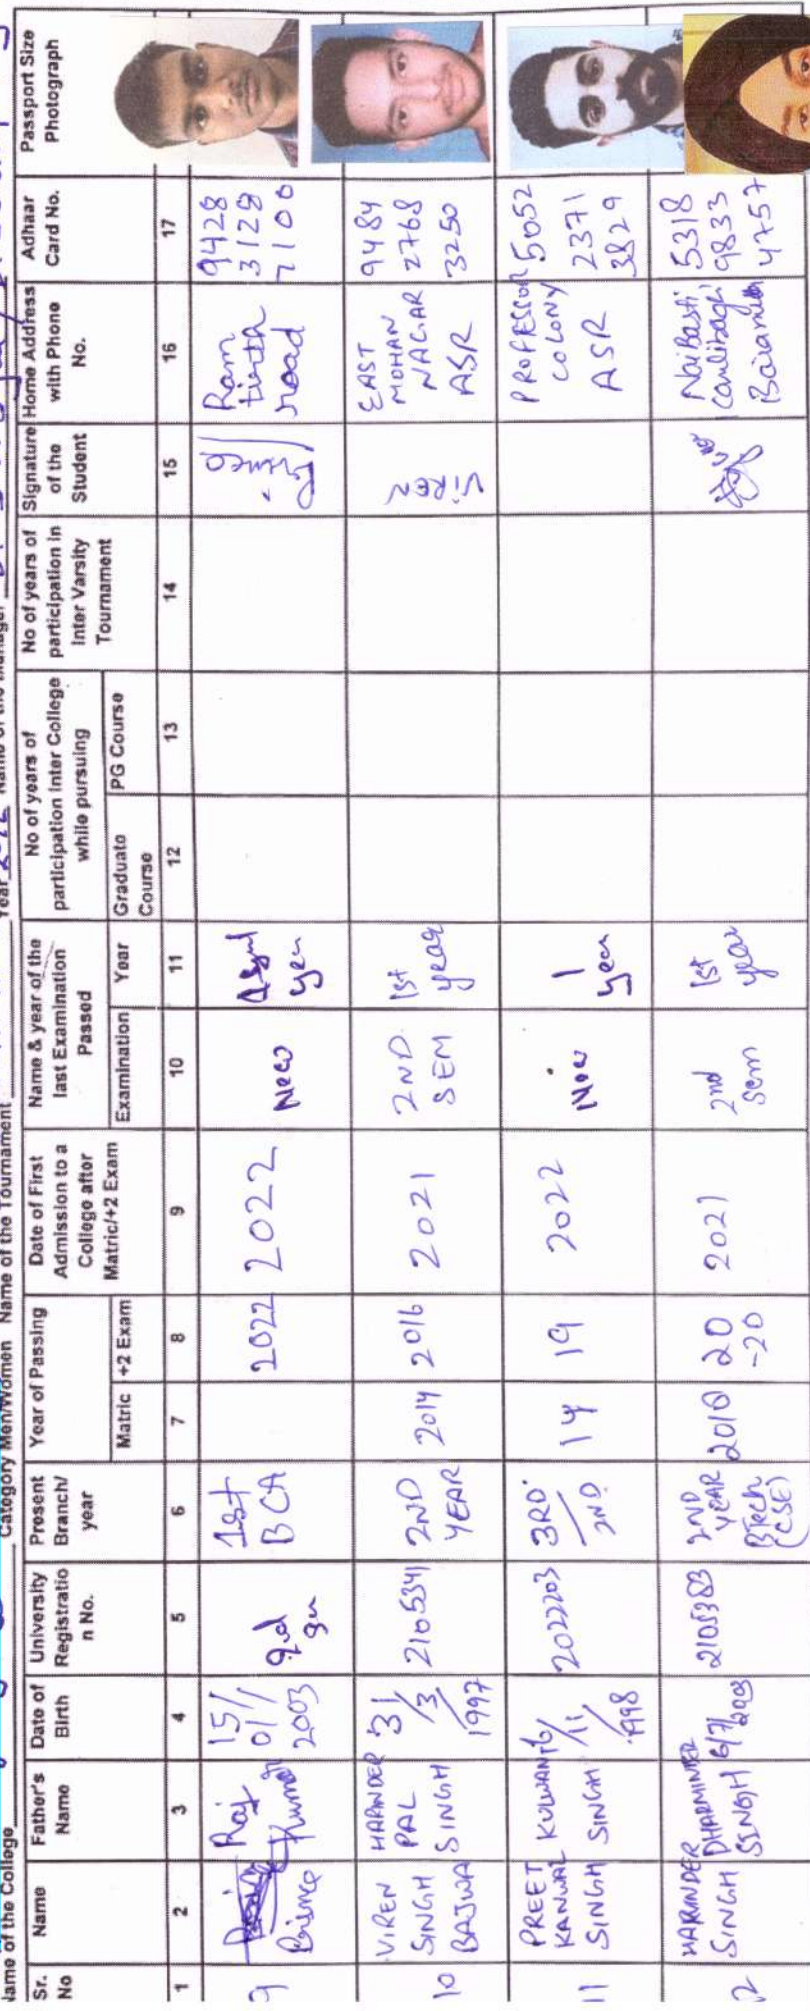 Name of the College Category Men/Women Name of the Tournament Year 2022 Name of the Manager
Sr. No
Name
Father's Name
Date of Birth
University Registratio n No.
Present Branch/ year
Year of Passing
Matric
+2 Exam
Date of First Admission to a College after Matric/+2 Exam
Name & year of the last Examination Passed
Examination
Year
No of years of participation Inter College while pursuing
Graduate Course
PG Course
No of years of participation in Inter Varsity Tournament
Signature of the Student
Home Address with Phone No.
Adhaar Card No.
Passport Size Photograph
1 2 3 4 5 6 7 8 9 10 11 12 13 14 15 16 17
9 Prince Raj Kumar 15/ 01/ 2003 1st BCA 2022 2022 New year Ram tirth road 9428 3128 7100
10 VIREN SINGH BAJWA HARINDER PAL SINGH 31/3/1997 2105341 2ND YEAR 2014 2016 2021 2ND SEM 1st year ViREN EAST MOHAN NAGAR ASR 9484 2768 3250
11 PREET KANWAL SINGH KULWANT SINGH 16/11/1998 2022203 3RD/2ND 14 19 2022 New 1 year PROFESSOR COLONY ASR 5052 2371 3829
12 HARINDER SINGH DHARMINTER SINGH 6/7/2003 2105383 2ND YEAR BTech (CSE) 2018 20-20 2021 2nd sem 1st year Nai Basti 5318 9833 4757